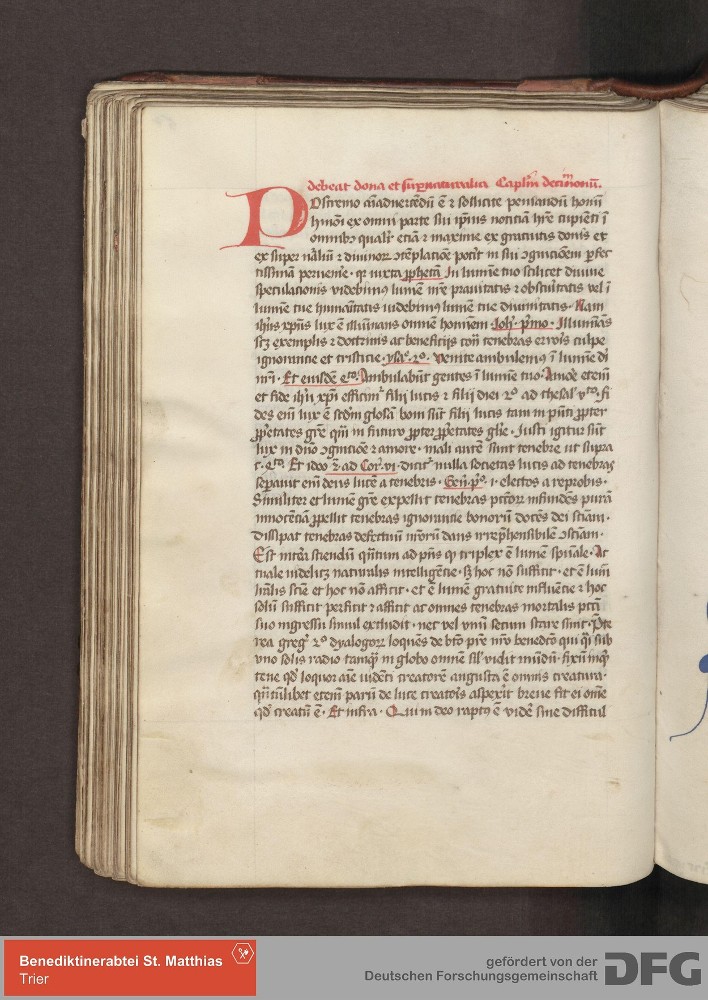 debeat dona et sup̄naturalia Capl'm decimnonū.
Postremo aīaduertēdū ē ⁊ sollicite pensandū homī
hmōi ex omni parte sui ip̄ius noticiā h're cupiēti ī
omnibꝫ qualr̄ etiā ⁊ maxime ex gratuitis donis ex
ex super nālīu ⁊ diuinorꝫ ↄtēplacōe potīt in sui ↄgnicōem p̄fec
tissimā peruenire · qꝛ iuxta ꝓphetā In lumīe tuo scilicet diuine
speculacionis videbimꝰ lumē n̄re prauitatis ⁊ obscuritatis vel ī
lumīe tue humanitatis uidebimꝰ lumē tue diuinitatis · Nam
ih̄us xp̄us lux ē illumīans omnē hominem · Joh̄ · pͥmo · Illumīās
scꝫ exemplis ⁊ doctrinis ac beneficijs cont̄ tenebras erroris culpe
ignorantie et tristicie · ysaͤ · 2º · Venite ambulemꝰ ī lumīe dn̄i
nr̄i · Et eiusdē · Ambulabūt gentes ī lumīe tuo · Amore etenī
et fide ih̄u xp̄i efficimͬ filij lucis ⁊ filij diei 2º ad thesal' vᵗᵒ · fi
des enī lux ē scd̄m glosā boni sūt filij lucis tam in p̄nti ꝓpter
ꝓp̄etates gr̄e qm̄ in futuro ꝓpter ꝓp̄etates gl'ie · Justi igitur sūt
lux in dn̄o ↄgnicōe ⁊ amore · mali autē sunt tenebre ut supra
Et ideo 2̄ ad Corͥ · vi · dicitͬ nulla societas lucis ad tenebras
Separauit enī deus lucē a tenebris · Gen̄ · pº · i · electos a reprobis ·
Similiter et lumē gr̄e expellit tenebras pctōrꝫ infundēs purā
innocēciā ꝓpellit tenebras ignorancie bonorū docēs dei sciam ·
Dissipat tenebras defectuū nr̄orū dans irrep̄hensibilē ↄsciam ·
Est int̄ea sciendū qūtum ad p̄ns qꝫ triplex ē lumē sp̄uale · Ac
tuale uidelicꝫ naturalis intelligēcie · sꝫ hoc nō sufficit · et ē lum̄
lr̄ālis scīe et hoc nō afficit · et ē lumē gratuite influēcie ⁊ hoc
solū sufficit perficit ⁊ afficit ac omnes tenebras mortalis pctī
suo ingressu simul excludit · nec vel vnū secum stare sinit · Pre
rea gregͬ 2º dyalogorꝫ loquēs de bt̄o pr̄e nr̄o benedcō qui qͥ sub
vno solis radio tamqꝫ in globo omnē sil' vidit mūdū · fixū inqͥt
tene qd̄ loquor aīe uidēti creatorē angusta ē omnis creatura ·
qn̄tūlibet etenī parū de luce creatoris aspexit breue fit ei om̄e
qd̄ creatū ē · Et infra · Qui in deo raptꝰ ē vid'e sine difficul
Benediktinerabtei St. Matthias
Trier
gefördert von der
Deutschen Forschungsgemeinschaft
DFG